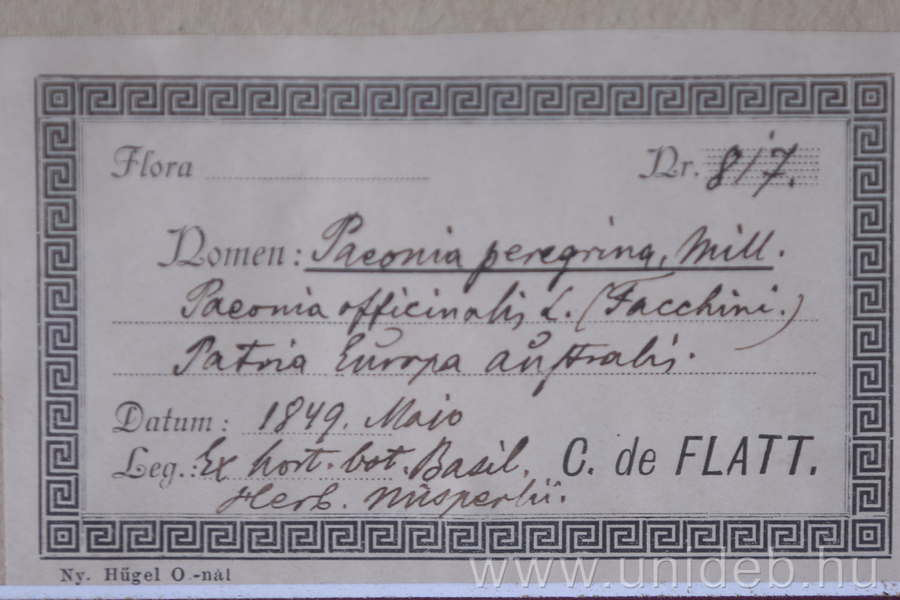 Flora
Nr. 817.
Nomen: Paeonia peregrina, Mill.
Paeonia officinalis L. (Facchini.)
Patria Europa australis.
Datum: 1849. Maio
Leg.: Ex hort. bot. Basil. C. de FLATT.
Herb.
Ny. Hügel O.-nál
www.unideb.hu